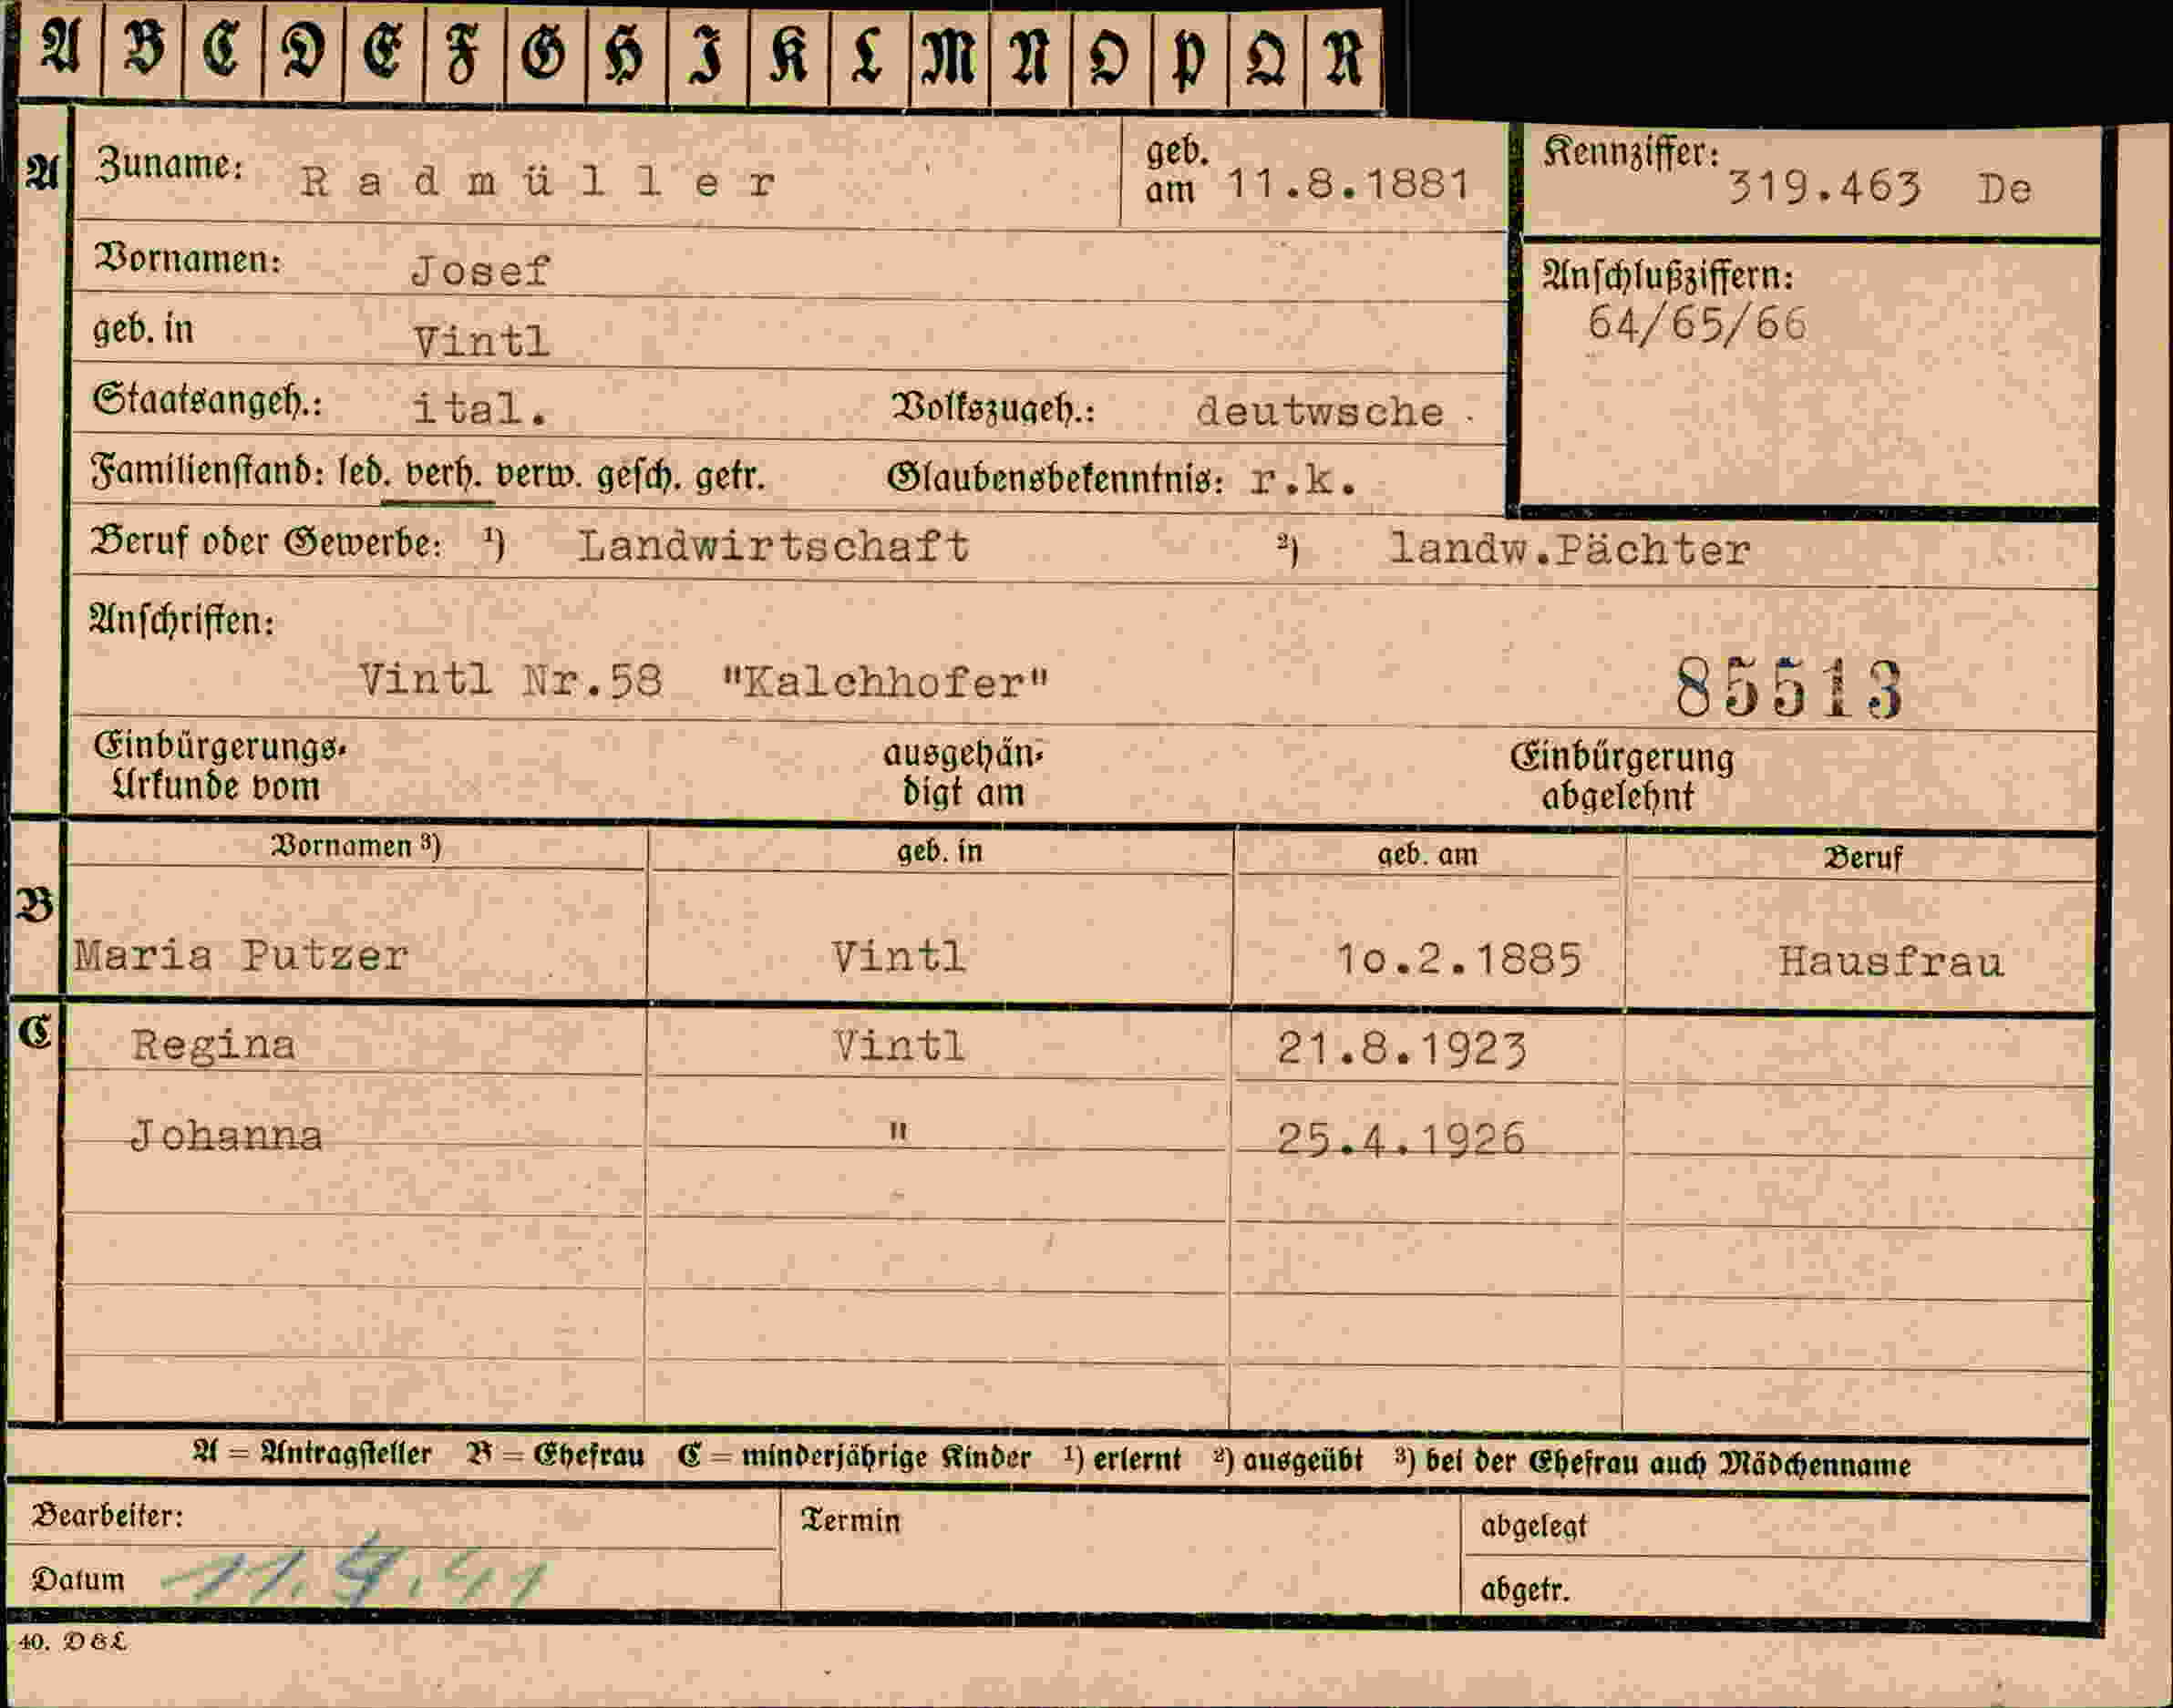 A B C D E F G H I K L M N O P Q R
A Zuname: Radmüller geb. am 11.8.1881 Kennziffer: 319.463 De
Vornamen: Josef Anschlußziffern:
64/65/66
geb. in Vintl
Staatsangeh.: ital. Volkszugeh.: deutwsche
Familienstand: led. verh. verw. gesch. getr. Glaubensbekenntnis: r.k.
Beruf oder Gewerbe: ¹) Landwirtschaft ²) landw.Pächter
Anschriften:
Vintl Nr.58 "Kalchhofer" 85513
Einbürgerungs- ausgehän- Einbürgerung
Urkunde vom digt am abgelehnt
Vornamen ³) geb. in geb. am Beruf
B
Maria Putzer Vintl 1o.2.1885 Hausfrau
C Regina Vintl 21.8.1923
Johanna " 25.4.1926
A = Antragsteller B = Ehefrau C = minderjährige Kinder ¹) erlernt ²) ausgeübt ³) bei der Ehefrau auch Mädchenname
Bearbeiter: Termin abgelegt
Datum abgetr.
40. D&L